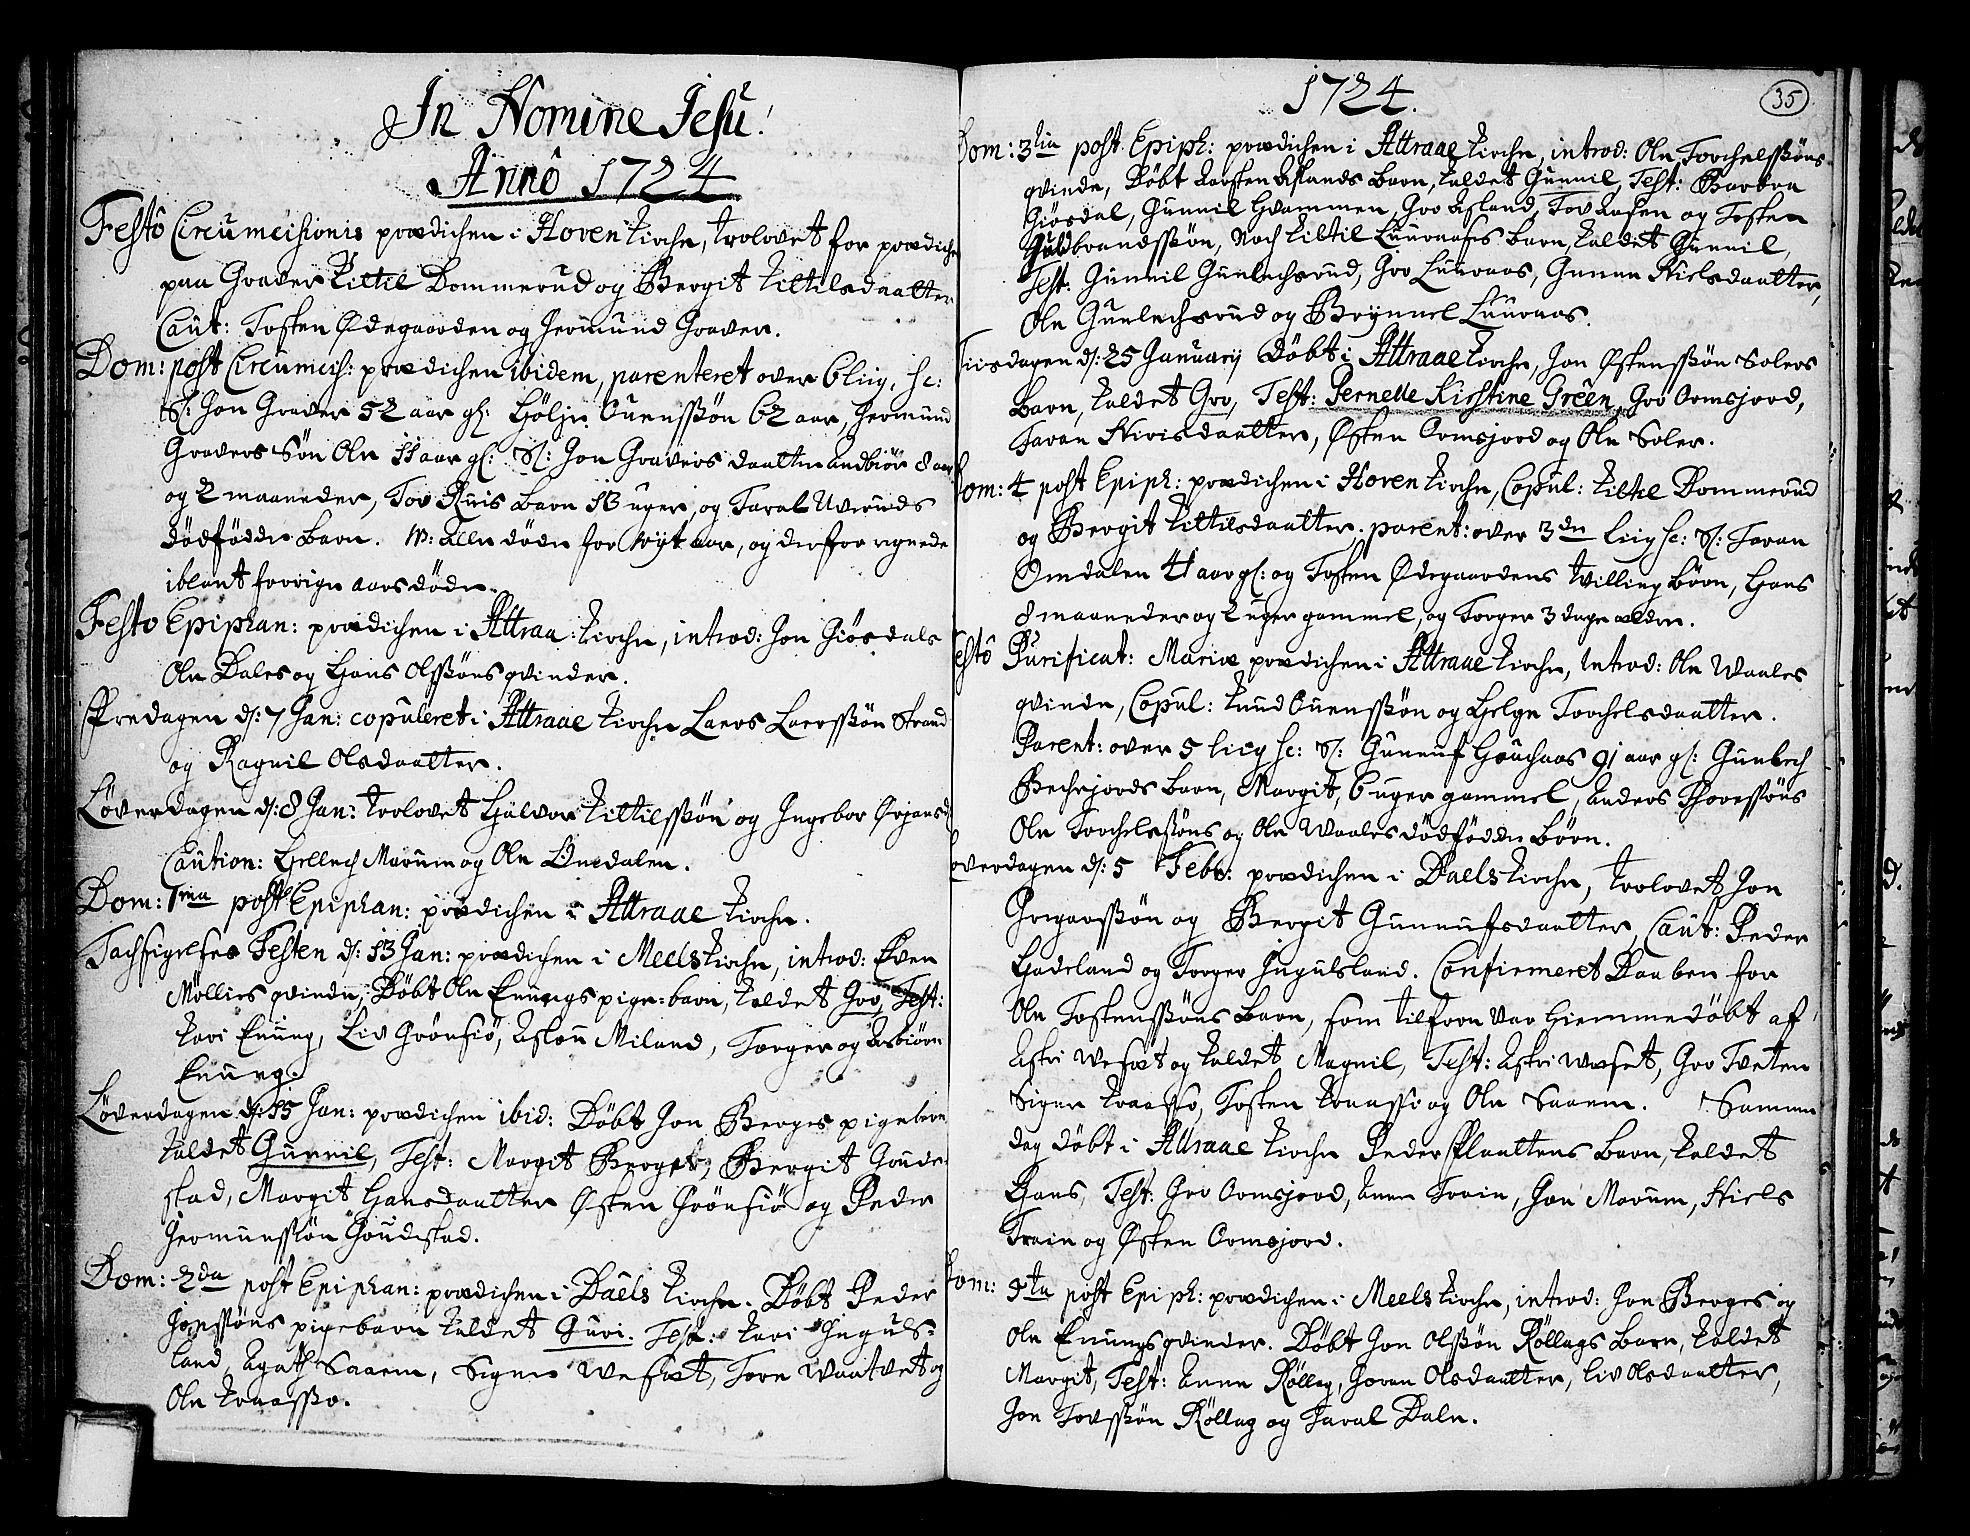 In Nomine Jesu!
Annô 1724
Festô Circumcisionis prædichen i Hoven Kirche, trolovet for prædichen
paa Graver Kittil Dommerud og Bergit Kittilsdaatter
Caut: Tosten Ødegaarden og Germund Graver.
Dom: post Circumcis: prædichen ibidem, parenteret over 6 liig, sc:
S: Jon Graver 52 aar gl: Hölje Ouensßön 62 aar, Germund
Gravers Sön Ole 11 aar gl: S: Jon Gravers daatter Andbiör 8 aar
og 2 maaneder, Tov Ruis barn 13 uger, og Taral Uveruds
dödfödde barn. NB: Alle döde for Nyt aar, og derfor regnede
iblant forrige aars döde.
Festo Epiphan: prædichen i Attraa: Kirche, introd: Jon Giösdals
Ole Dales og Hans Olsßöns qvinder.
Fredagen d: 7 Jan: copuleret i Attraae Kirche Laers Laersßön Strand
og Ragnil Olsdaatter.
Löverdagen d: 8 Jan: trolovet Halvor Kittilsßön og Ingebor Örjansd:
Caution: Hellech Marum og Ole Omdalen.
Dom: 1ma post Epiphan: prædichen i Attraae Kirche.
Tachsigelses Festen d: 13 Jan: prædichen i Meels Kirche, introd: Even
Möllers qvinde, Döbt Ole Enungs pige-barn, kaldet Gro, Test:
Kari Enung, Liv Grönsiö, Aslou Miland, Torger og Asbiörn
Enung.
Löverdagen d: 15 Jan: prædichen ibid: Döbt Jon Berges pigebarn
kaldet Gunnil, Test: Margit Berget, Bergit Goude-
stad, Margit Hansdaatter Østen Grönsiö og Peder
Germunsßön Goudestad.
Dom: 2da post Epiphan: prædichen i Daels Kirche. Döbt Peder
Jonsßöns pigebarn kaldet Guri. Test: Kari Inguls-
land, Agath Saaem, Signe Wesæt, Tore Waatvet og
Ole Kraasßo.
1724.
35
Dom: 3tia post Epiph: prædichen i Attraae Kirche, introd: Ole Torchelsßöns
qvinde, Döbt Karsten Aslands barn, kaldet Gunnil, Test: Barbra
Giösdal, Gunnil Hvammen, Gro Asland, Tov Aasen og Tosten
Guldbrandsßön, Noch Kiltil Luuraases barn, kaldet Gunnil,
Test: Gunnil Gunlechsrud, Gro Luuraas, Gunne Nielsdaatter,
Ole Gunlechsrud og Brynnel Luuraas.
Tiisdagen d: 25 Januarij Döbt i Attraae Kirche, Jon Østensßön Solers
barn, kaldet Gro, Test: Pernelle Kirstine Grêen, Gro Ormsjord,
Taran Nirisdaatter, Østen Ormsjord og Ole Soler.
Dom: 4 post Epiph: prædichen i Hoven Kirche, Copul: Kittil Dommerud
og Bergit Kittilsdaatter, parent: over 3de liig sc: S: Taran
Omdalen 41 aar gl: og Tosten Ødegaardens tvilling börn, Hans
8 maaneder og 2 uger gammel, og Torger 3 dage ældre.
Festô Purificat: Mariæ prædichen i Attraae Kirche, introd: Ole Waales
qvinde, Copul: Knud Ouensßön og Helge Torchelsdaatter.
Parent: over 5 liig sc: S: Gunnuf Houchaas 91 aar gl: Gunlech
Bechesjords barn, Margit, 6 uger gammel, Anders Thoresßöns
Ole Torchelsßöns og Ole Waales dödfödde börn.
Loverdagen d: 5 Febr: prædichen i Daels Kirche, trolovet Jon
Gregarsßön og Bergit Gunnufsdaatter, Caut: Peder
Hadeland og Torger Ingulsland. Confirmeret Daaben for
Ole Tostensßöns barn, som tilforn var hiemmedöbt af
Askri Wesæt og kaldet Magnil, Test: Askri Wesæt, Gro Tveten
Signe Kraasso, Tosten Kraasso og Ole Saaem. Samme
dag döbt i Attraae Kirche Peder Plaattens barn, kaldet
Hans, Test: Gro Ormsjord, Anne Train, Jon Marum, Niels
Train og Østen Ormsjord.
Dom: 5ta post Epiph: prædichen i Meels Kirche, introd: Jon Berges og
Ole Enungs qvinder. Döbt Jon Olsßön Röllags barn, kaldet
Margit, Test: Anne Röllag, Goran Olsdaatter, Liv Olsdaatter,
Jon Tovsßön Röllag og Taral Dale.